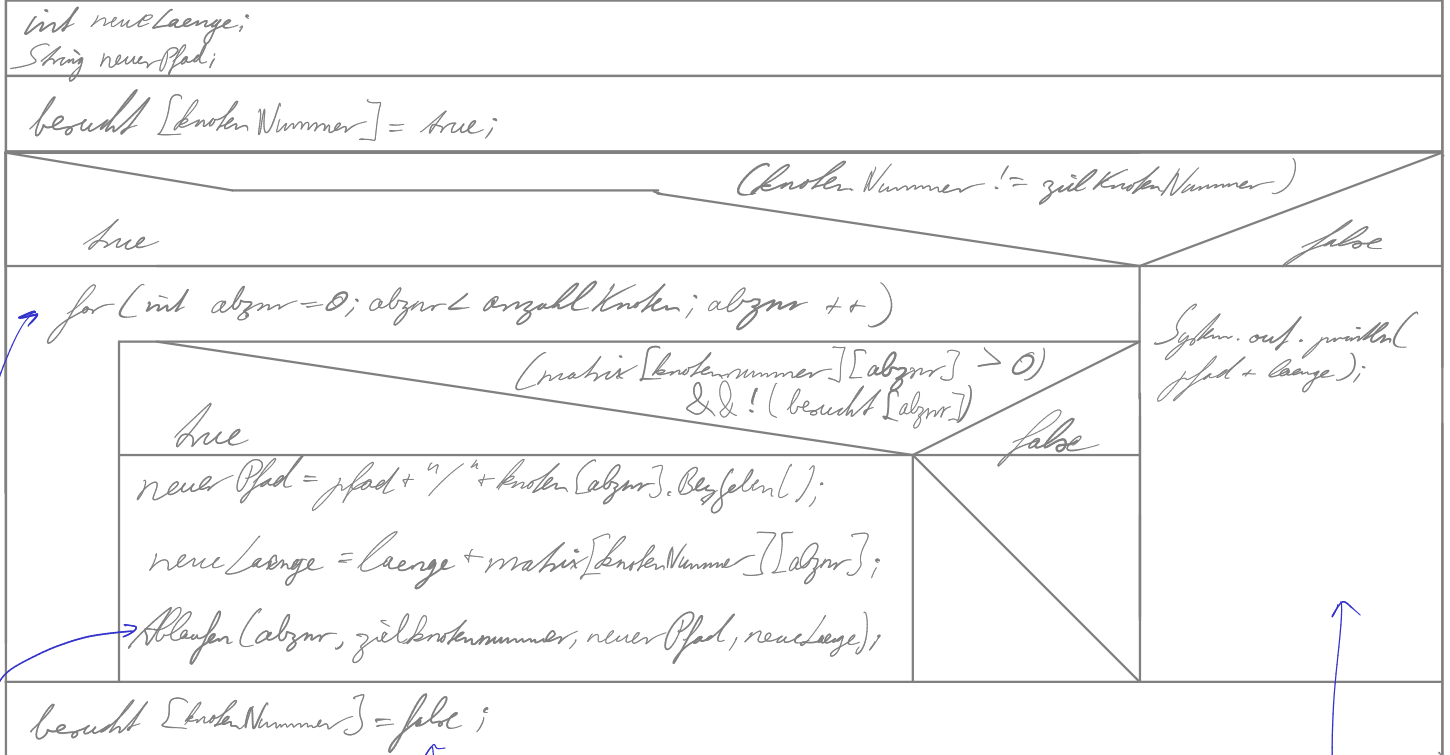 int neueLaenge;
String neuerPfad;
besucht [knotenNummer] = true;
(knotenNummer != zielKnotenNummer)
true
false
for (int abznr = 0; abznr < anzahlKnoten; abznr ++)
System.out.println(
pfad + laenge);
(matrix[knotennummer][abznr] > 0)
&& ! (besucht[abznr])
true
false
neuerPfad = pfad + "/" + knoten[abznr].
neueLaenge = laenge + matrix[knotenNummer][abznr];
Ablaufen(abznr, zielknotennummer, neuerPfad, neueLaenge);
besucht [knotenNummer] = false;